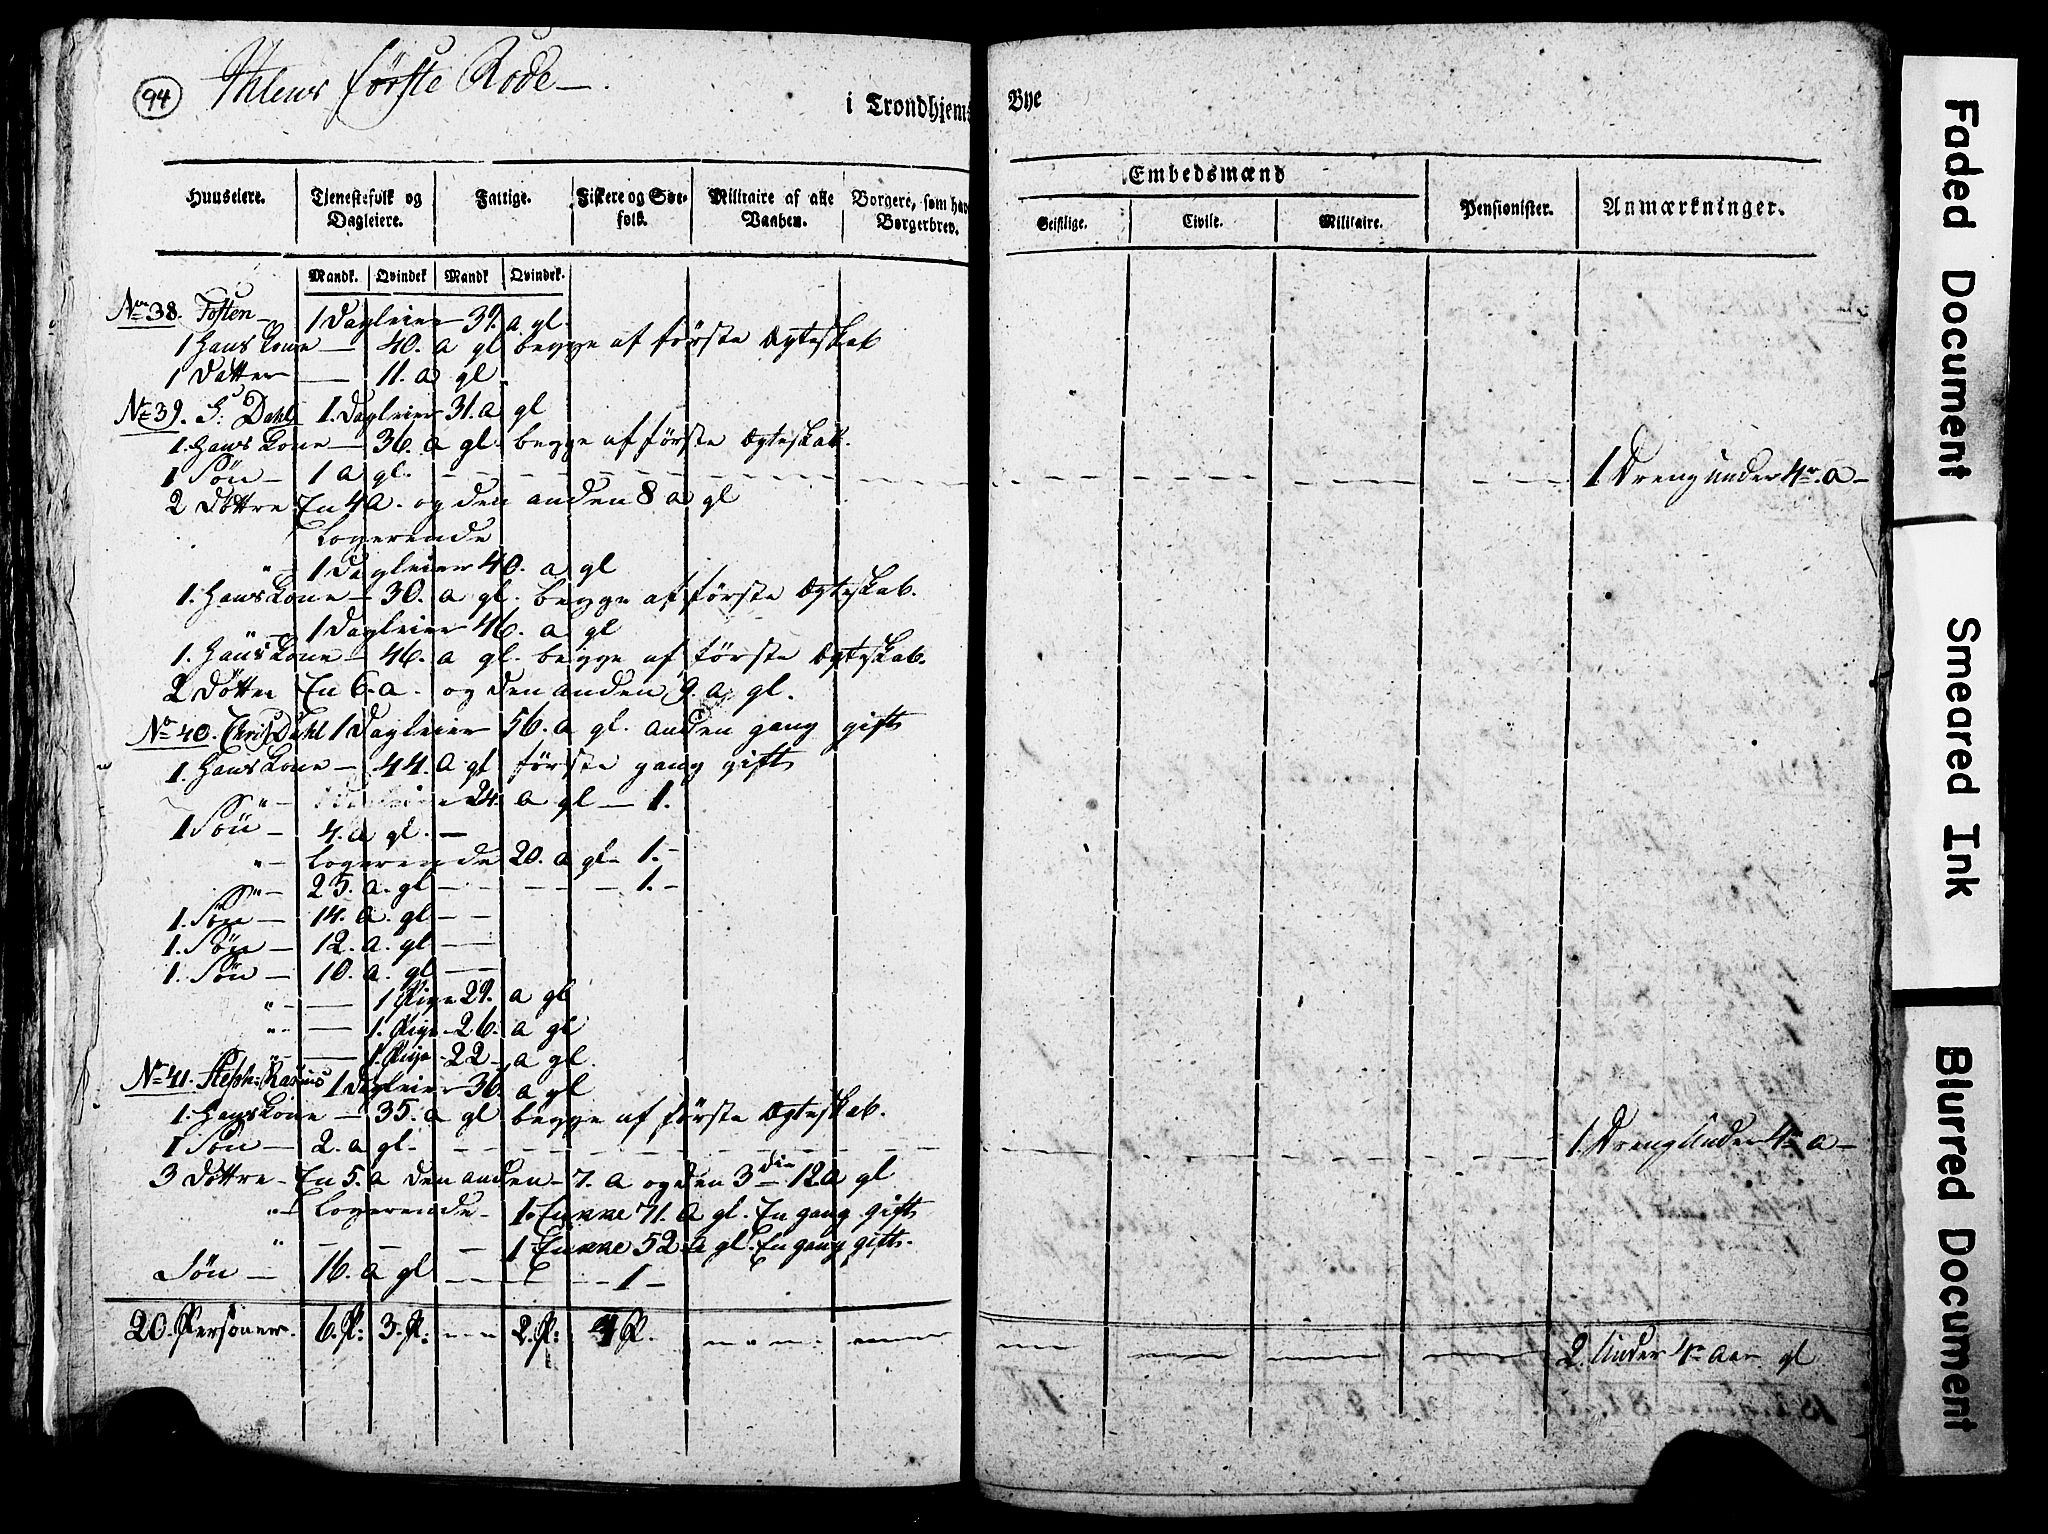 94
Ihlens første Rode
i Trondhjems Bye
Huuseiere. Tjenestefolk og Dagleiere. Fattige. Fiskere og Søefolk. Militaire af alle Vaaben. Borgere, som have Borgerbrev. Embedsmænd Pensionister. Anmærkninger.
Geistlige. Civile. Militaire.
Mandk. Qvindek Mandk Qvindek.
No 38. Tosten 1 Dagleier 39. a gl.
1 Hans Kone — 40. a gl begge af første Ægteskab
1 Datter — 11. a gl
No 39. G: Dahl 1. Dagleier 31. a gl
1. Hans Kone — 36. a gl. begge af første Ægteskab.
1 Søn — 1 a gl. 1 Dreng under 4re a —
2 Døttre En 4 a. og den anden 8 a gl
Logerende
" 1 Dagleier 40. a gl
1. Hans Kone — 30. a gl. begge af første Ægteskab.
1 Dagleier 46. a gl
1. Hans Kone — 46. a gl. begge af første Ægteskab.
2 Døttre En 6. a. og den anden 9. a gl.
No 40. Chris: Dahl 1 Dagleier 56. a gl. anden gang gift
1. Hans Kone — 44. a gl første gang gift
24. a gl — 1.
1 Søn — 4. a gl. —
" — Logerende 20. a gl — 1. —
" — 23. a. gl — 1. —
1. Søn — 14. a. gl — —
1. Søn — 12. a. gl — —
1. Søn — 10. a. gl — —
" — — 1 Pige 29. a gl
" — — 1. Pige — 26. a gl
" — — 1. Pige — 22 — a gl.
No 41. Steph: Rasmus 1 Dagleier 36. a gl
1. Hans Kone — 35. a gl begge af første Ægteskab.
1 Søn — 2. a gl. 1. Dreng Under 4re a —
3 Døttre — En 5. a den anden — 7. a og den 3die 12 a gl
" — Logerende — 1. Enkke 71. a gl. En gang gift
" — — — 1 Enkke 52. a gl. En gang gift.
Søn — 16. a gl — — 1 —
20. Personer. 6. P: 3. P: — 2. P: 4 P. 2. Under 4re Aar gl
Faded Document
Smeared Ink
Blurred Document